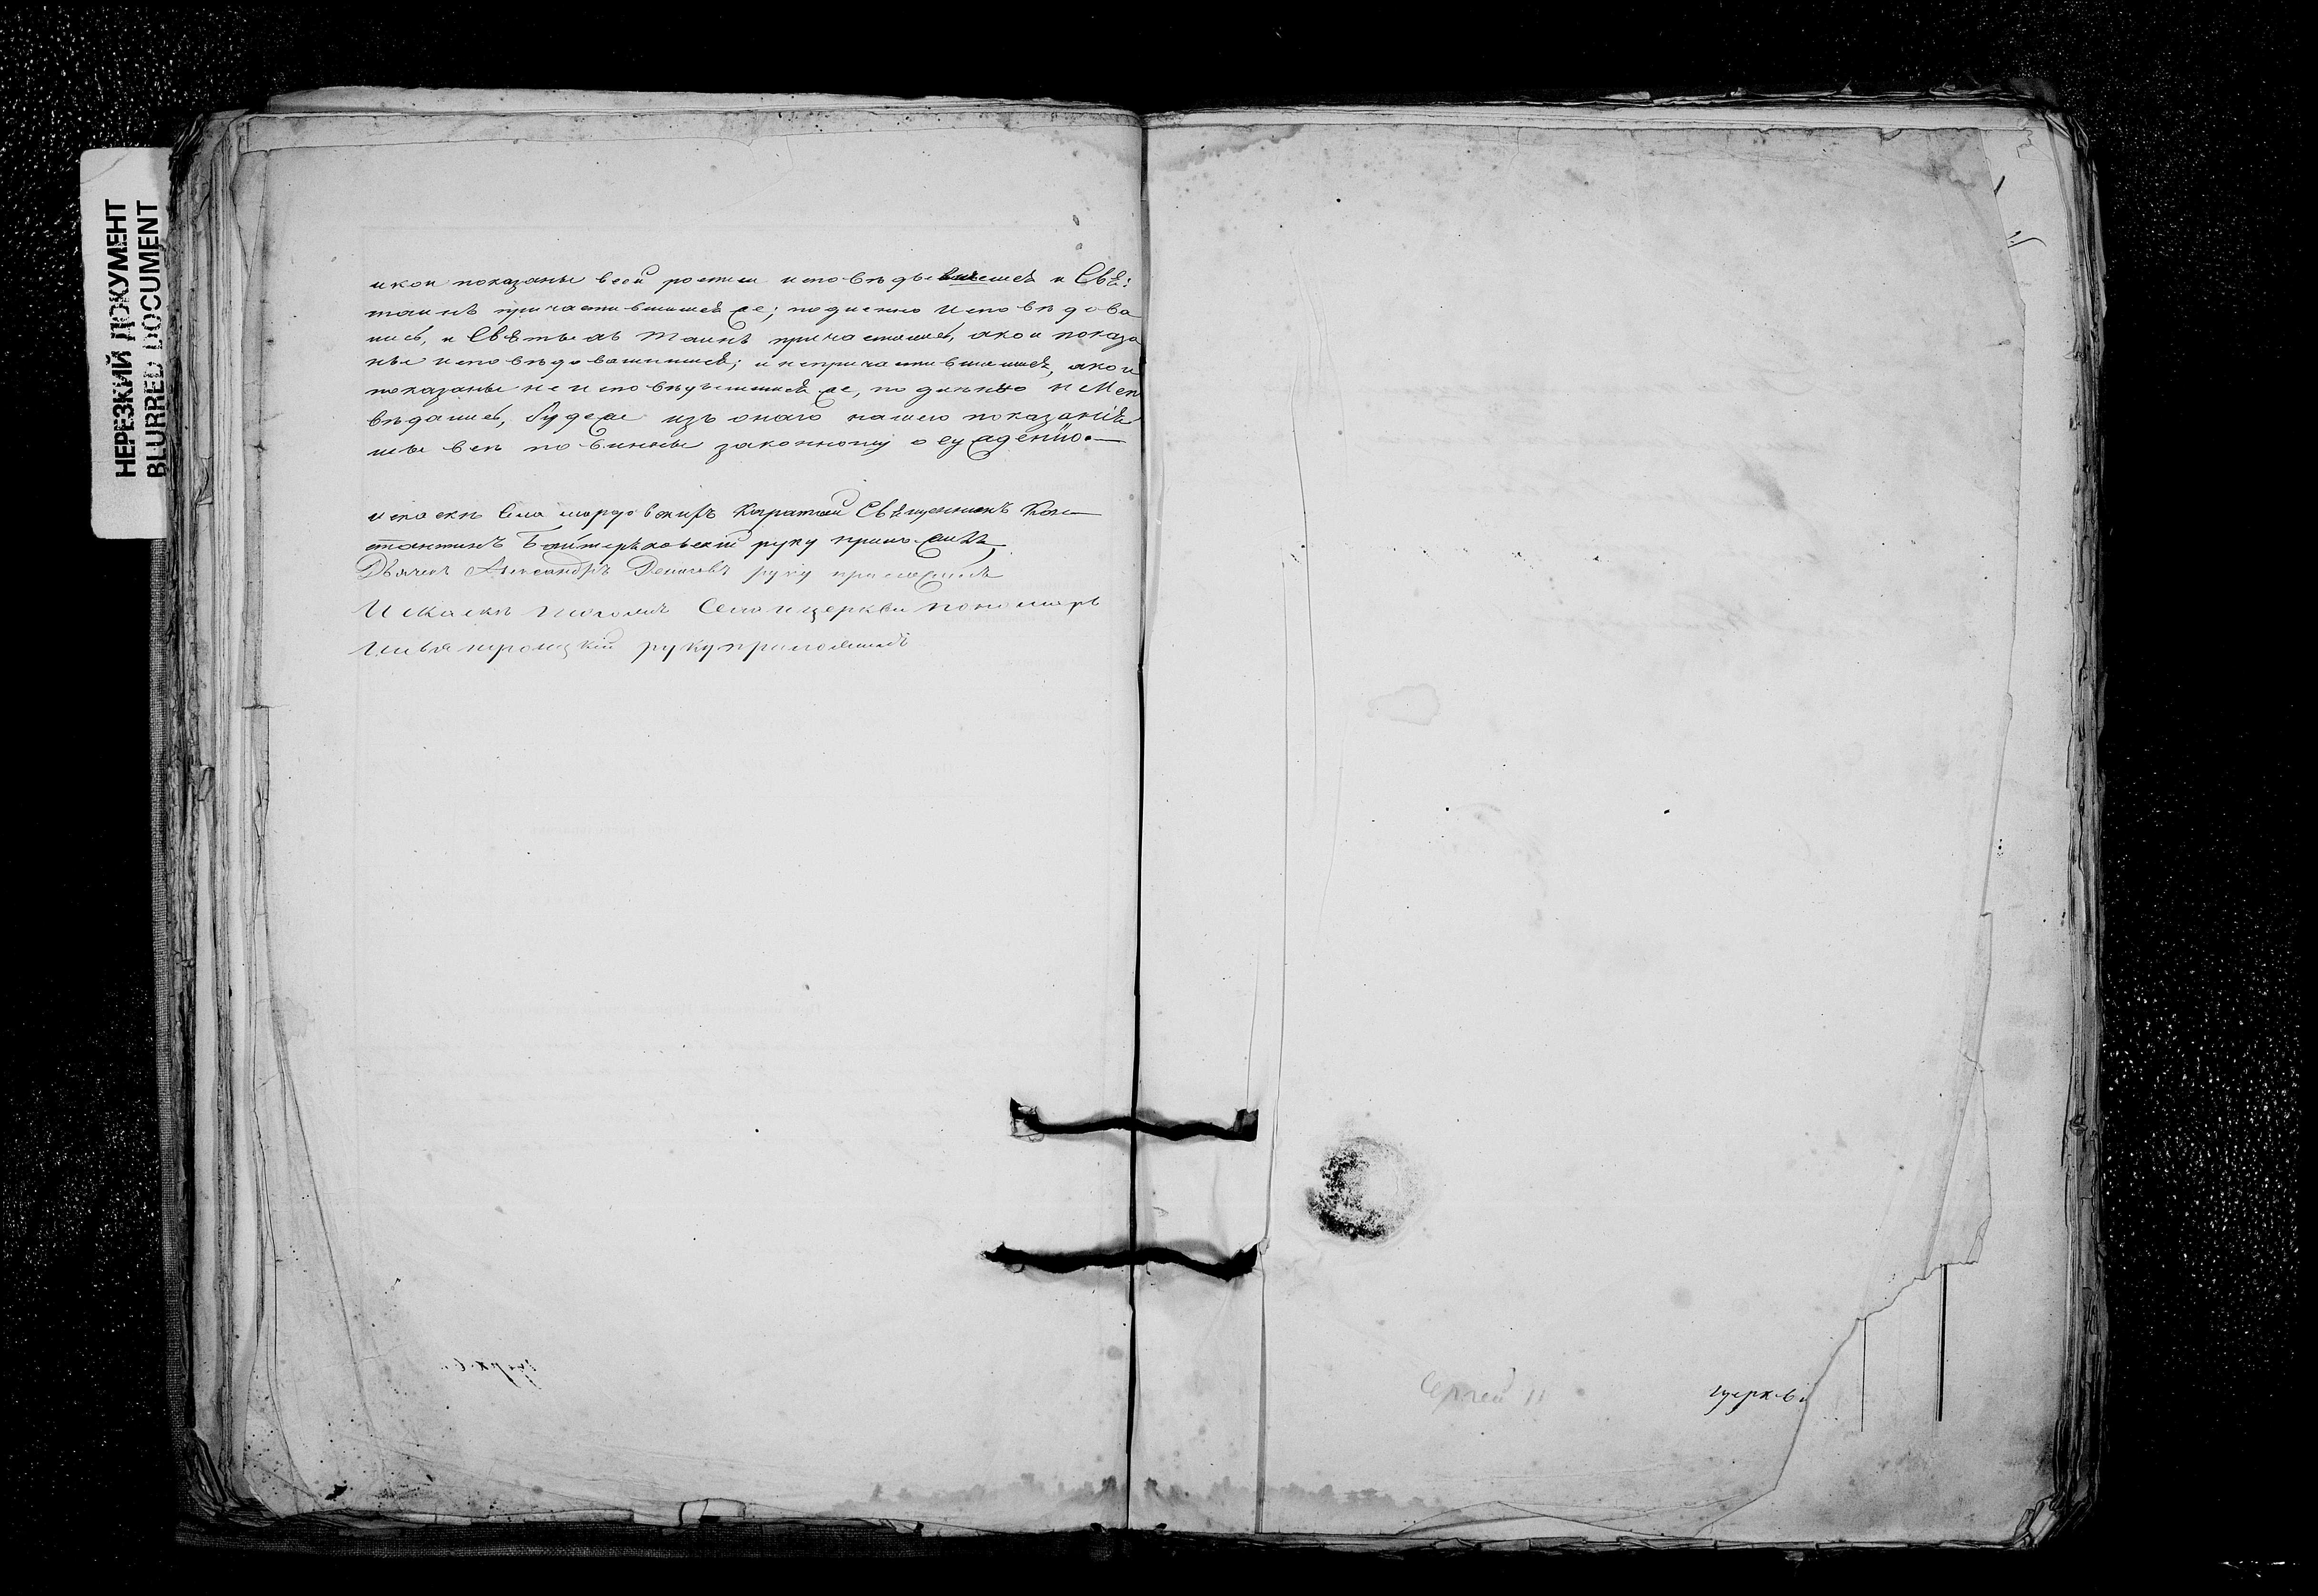 НЕРЕЗКИЙ ДОКУМЕНТ
BLURRED DOCUMENT
и кои показаны всей росписи исповѣды вшшеся и Свя:
таинъ причастившиися же; подленно исповѣдова
лись, и Святыхъ Таинъ причастились, а кои показа
ны исповѣдовашиися; и непричастившиися, а кои
показаны не исповѣдывшиися же, подленно не Исп
вѣдались, буде же изъ онаго нашего показанія
мы всѣ повинны законному осужденію.
Села Каратай Священникъ Кон
стантинъ руку приложилъ,
Дьячекъ Александръ Денисовъ руку приложилъ
Села и церкви пономарь
Илья Троицкій руку приложилъ
Сергей
церкви